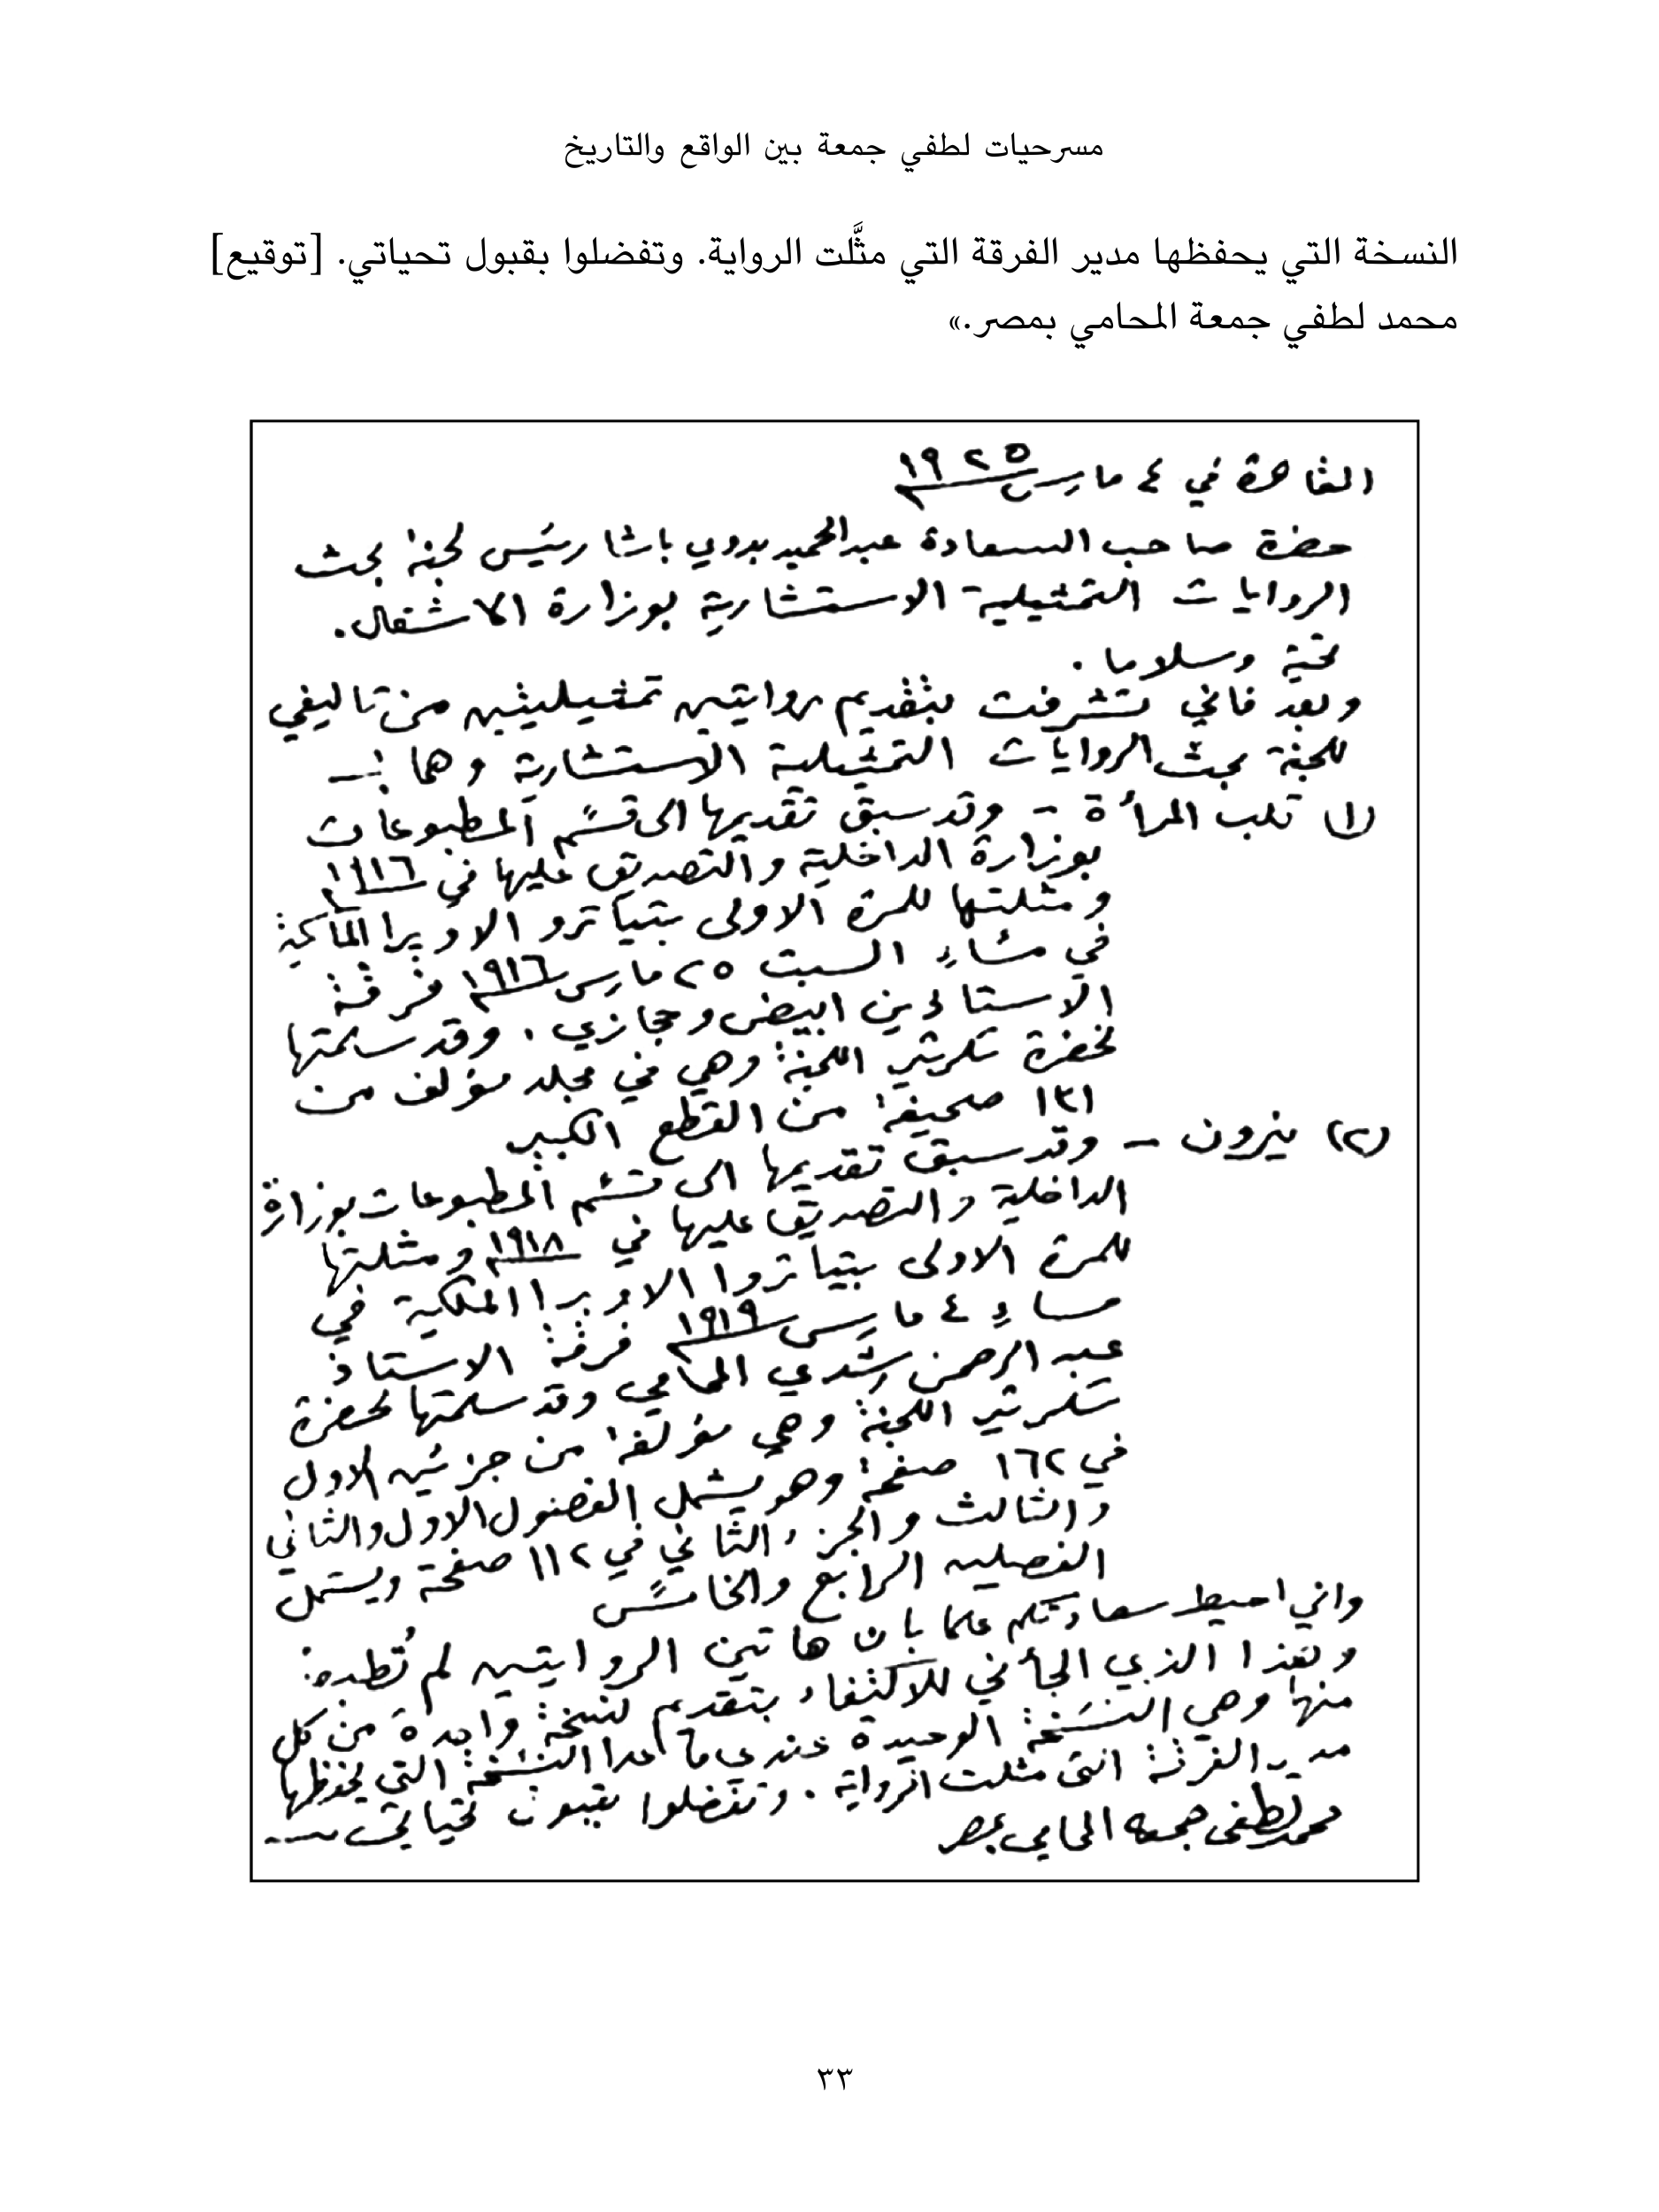 مسرحيات لطفي جمعة بين الواقع والتاريخ
النسخة التي يحفظها مدير الفرقة التي مثَّلت الرواية. وتفضلوا بقبول تحياتي. [توقيع]
محمد لطفي جمعة المحامي بمصر.»
القاهرة في ٤ مارس ١٩٢٥
حضرة صاحب السعادة عبدالحميد بدوي باشا رئيس لجنة بحث
الروايات التمثيلية الاستشارية بوزارة الاشغال.
تحية وسلاما .
وبعد فاني تشرفت بتقديم روايتين تمثيليتين من تاليفي
للجنة بحث الروايات التمثيلية الاستشارية وهما :ـ
(١) قلب المرأة – وقد سبق تقديمها الى قسم المطبوعات
بوزارة الداخلية والتصديق عليها في ١٩١٦
ومثلتها للمرة الاولى بتياترو الاوبرا الملكية
في مساء السبت ٢٥ مارس ١٩١٦ فرقة
الاستاذين ابيض وحجازي . وقد سلمتها
لحضرة سكرتير اللجنة وهي في مجلد مؤلف من
١٣١ صحيفة من القطع الكبير
(٢) نيرون – وقد سبق تقديمها الى قسم المطبوعات بوزارة
الداخلية والتصديق عليها في ١٩١٨ ومثلتها
للمرة الاولى بتياتروا الاوبرا الملكية في
مساء ٤ مارس ١٩١٩ فرقة الاستاذ
عبد الرحمن رشدي المحامي وقد سلمتها لحضرة
سكرتير اللجنة وهي مؤلفة من جزئين الاول
في ١٦٢ صفحة وهو يشمل الفصول الاول والثاني
والثالث والجزء الثاني في ١١٢ صفحة ويشمل
الفصلين الرابع والخامس
واني احيط سعادتكم علما بان هاتين الروايتين لم تُطبع
وهذا الذي الجأني للاكتفاء بتقديم نسخة واحدة من كل
منها وهي النسخة الوحيدة عندي ما عدا النسخة التي يحفظها
مدير الفرقة التى مثلت الرواية . وتفضلوا بقبول تحياتي
محمد لطفى جمعه المحامي بمصر
٣٣